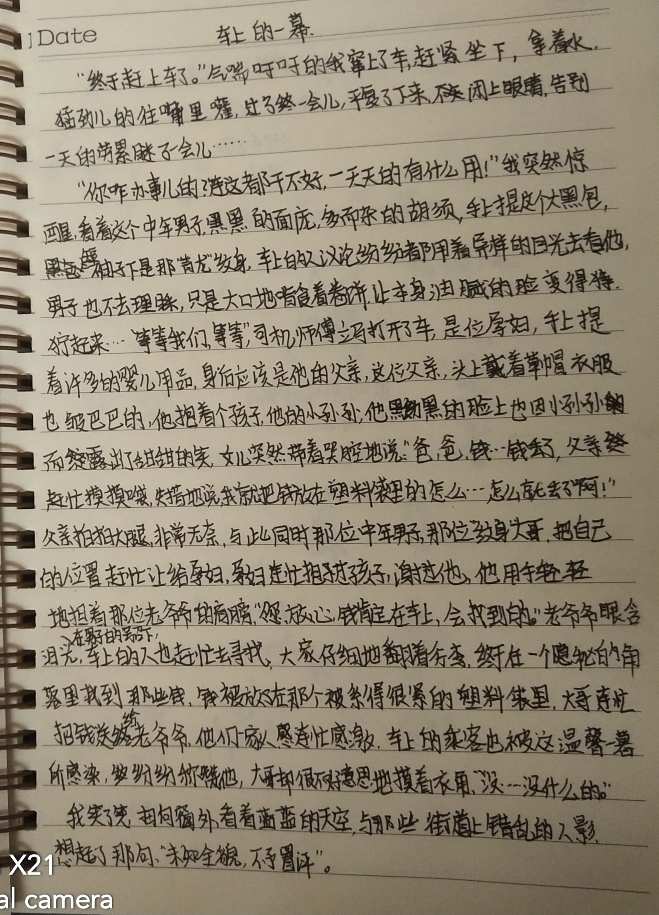 Date
车上的一幕
“终于赶上车了。”气喘吁吁的我窜上了车,赶紧坐下,拿着水,
猛劲儿的往嘴里灌,过了一会儿,平复了下来,闭上眼睛,告别
一天的劳累眯了一会儿……
“你咋办事儿的?连这都干不好,一天天的有什么用!”我突然惊
醒,看着这个中年男子,黑黑的面庞,多而杂的胡须,手上提这个大黑包,
袖子下是那青龙纹身,车上的人议论纷纷都用着异样的目光去看他,
男子也不去理睬,只是大口地啃食着卷饼,让本身油腻的脸变得狰
狞起来…“等等我们,等等”,司机师傅立马打开了车,是位孕妇,手上提
着许多的婴儿用品,身后应该是他的父亲,这位父亲,头上戴着草帽衣服
也皱巴巴的,他抱着个孩子,他的小孙孙,他黝黑的脸上也因小孙孙
而绽露出了甜甜的笑,女儿突然带着哭腔地说:“爸,爸,钱…钱丢了,父亲
赶忙摸摸嘴,失措地说我就把钱放在塑料袋里的怎么…怎么就丢了啊!”
父亲拍拍大腿,非常无奈,与此同时那位中年男子,那位纹身大哥,把自己
的位置赶忙让给孕妇,孕妇连忙抱过孩子,谢过他,他用手轻轻
地担着那位老爷爷的肩膀,“您放心,钱肯定在车上,会找到的。”老爷爷眼含
泪光,车上的人也赶忙去寻找,大家仔细地翻腾着行李,终于在一个隐秘的角
落里找到那些钱,钱被放在那个被系得很紧的塑料袋里,大哥连忙
把钱送给老爷爷,他们一家人连忙感激,车上的乘客也被这温馨一幕
所感染,纷纷称赞他,大哥却很不好意思地摸着衣角,“没…没什么的。”
我笑了笑,向窗外看着蓝蓝的天空,与那些街道上错乱的人影,
想起了那句:“未知全貌,不予置评”。
X21
al camera